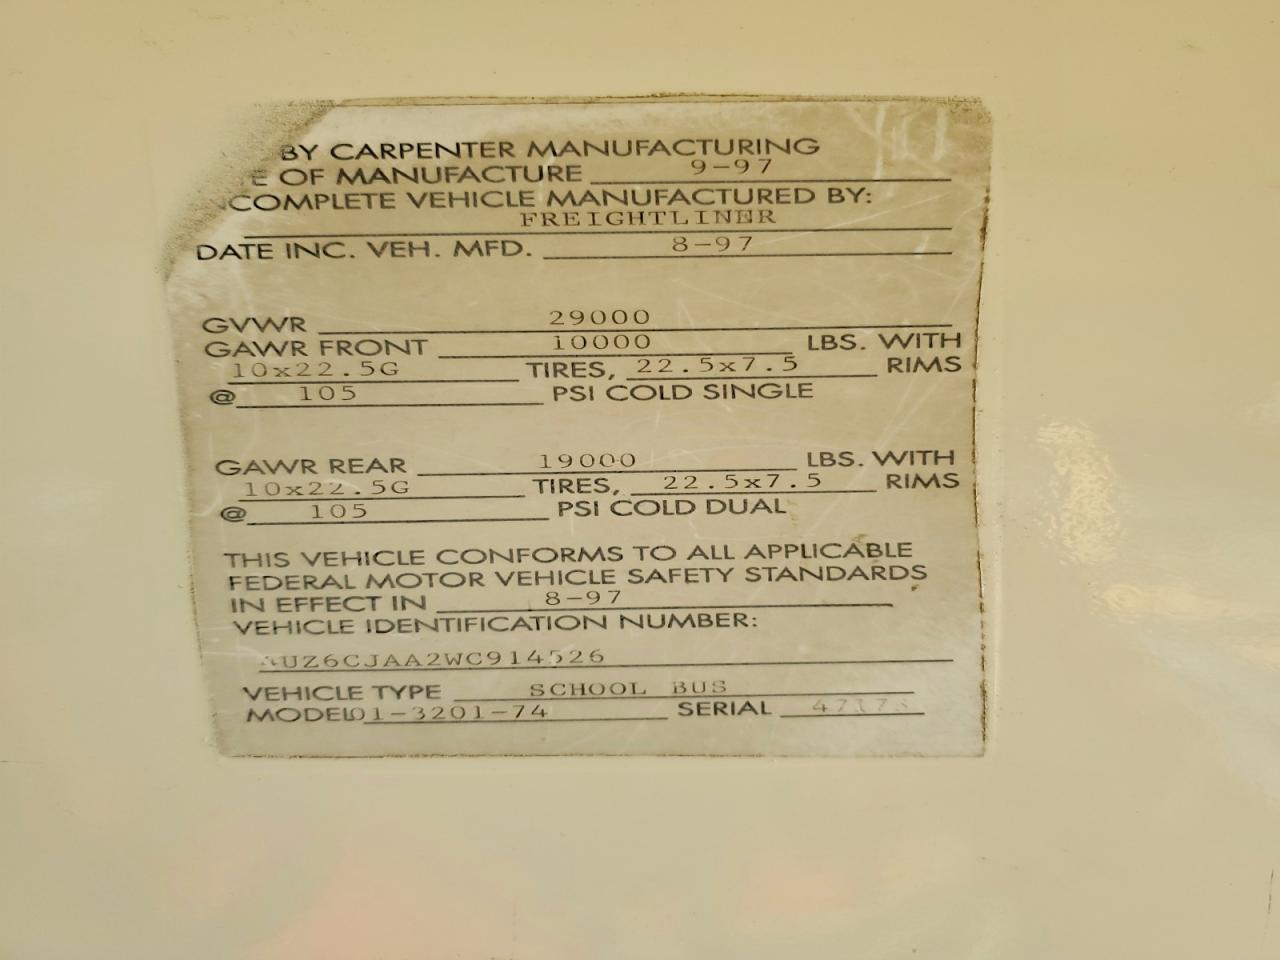 BY CARPENTER MANUFACTURING
E OF MANUFACTURE 9-97
COMPLETE VEHICLE MANUFACTURED BY:
FREIGHTLINER
DATE INC. VEH. MFD. 8-97
GVWR 29000
GAWR FRONT 10000 LBS. WITH
10x22.5G TIRES, 22.5x7.5 RIMS
@ 105 PSI COLD SINGLE
GAWR REAR 19000 LBS. WITH
10x22.5G TIRES, 22.5x7.5 RIMS
@ 105 PSI COLD DUAL
THIS VEHICLE CONFORMS TO ALL APPLICABLE
FEDERAL MOTOR VEHICLE SAFETY STANDARDS
IN EFFECT IN 8-97
VEHICLE IDENTIFICATION NUMBER:
4UZ6CJAA2WC914526
VEHICLE TYPE SCHOOL BUS
MODEL 01-3201-74 SERIAL